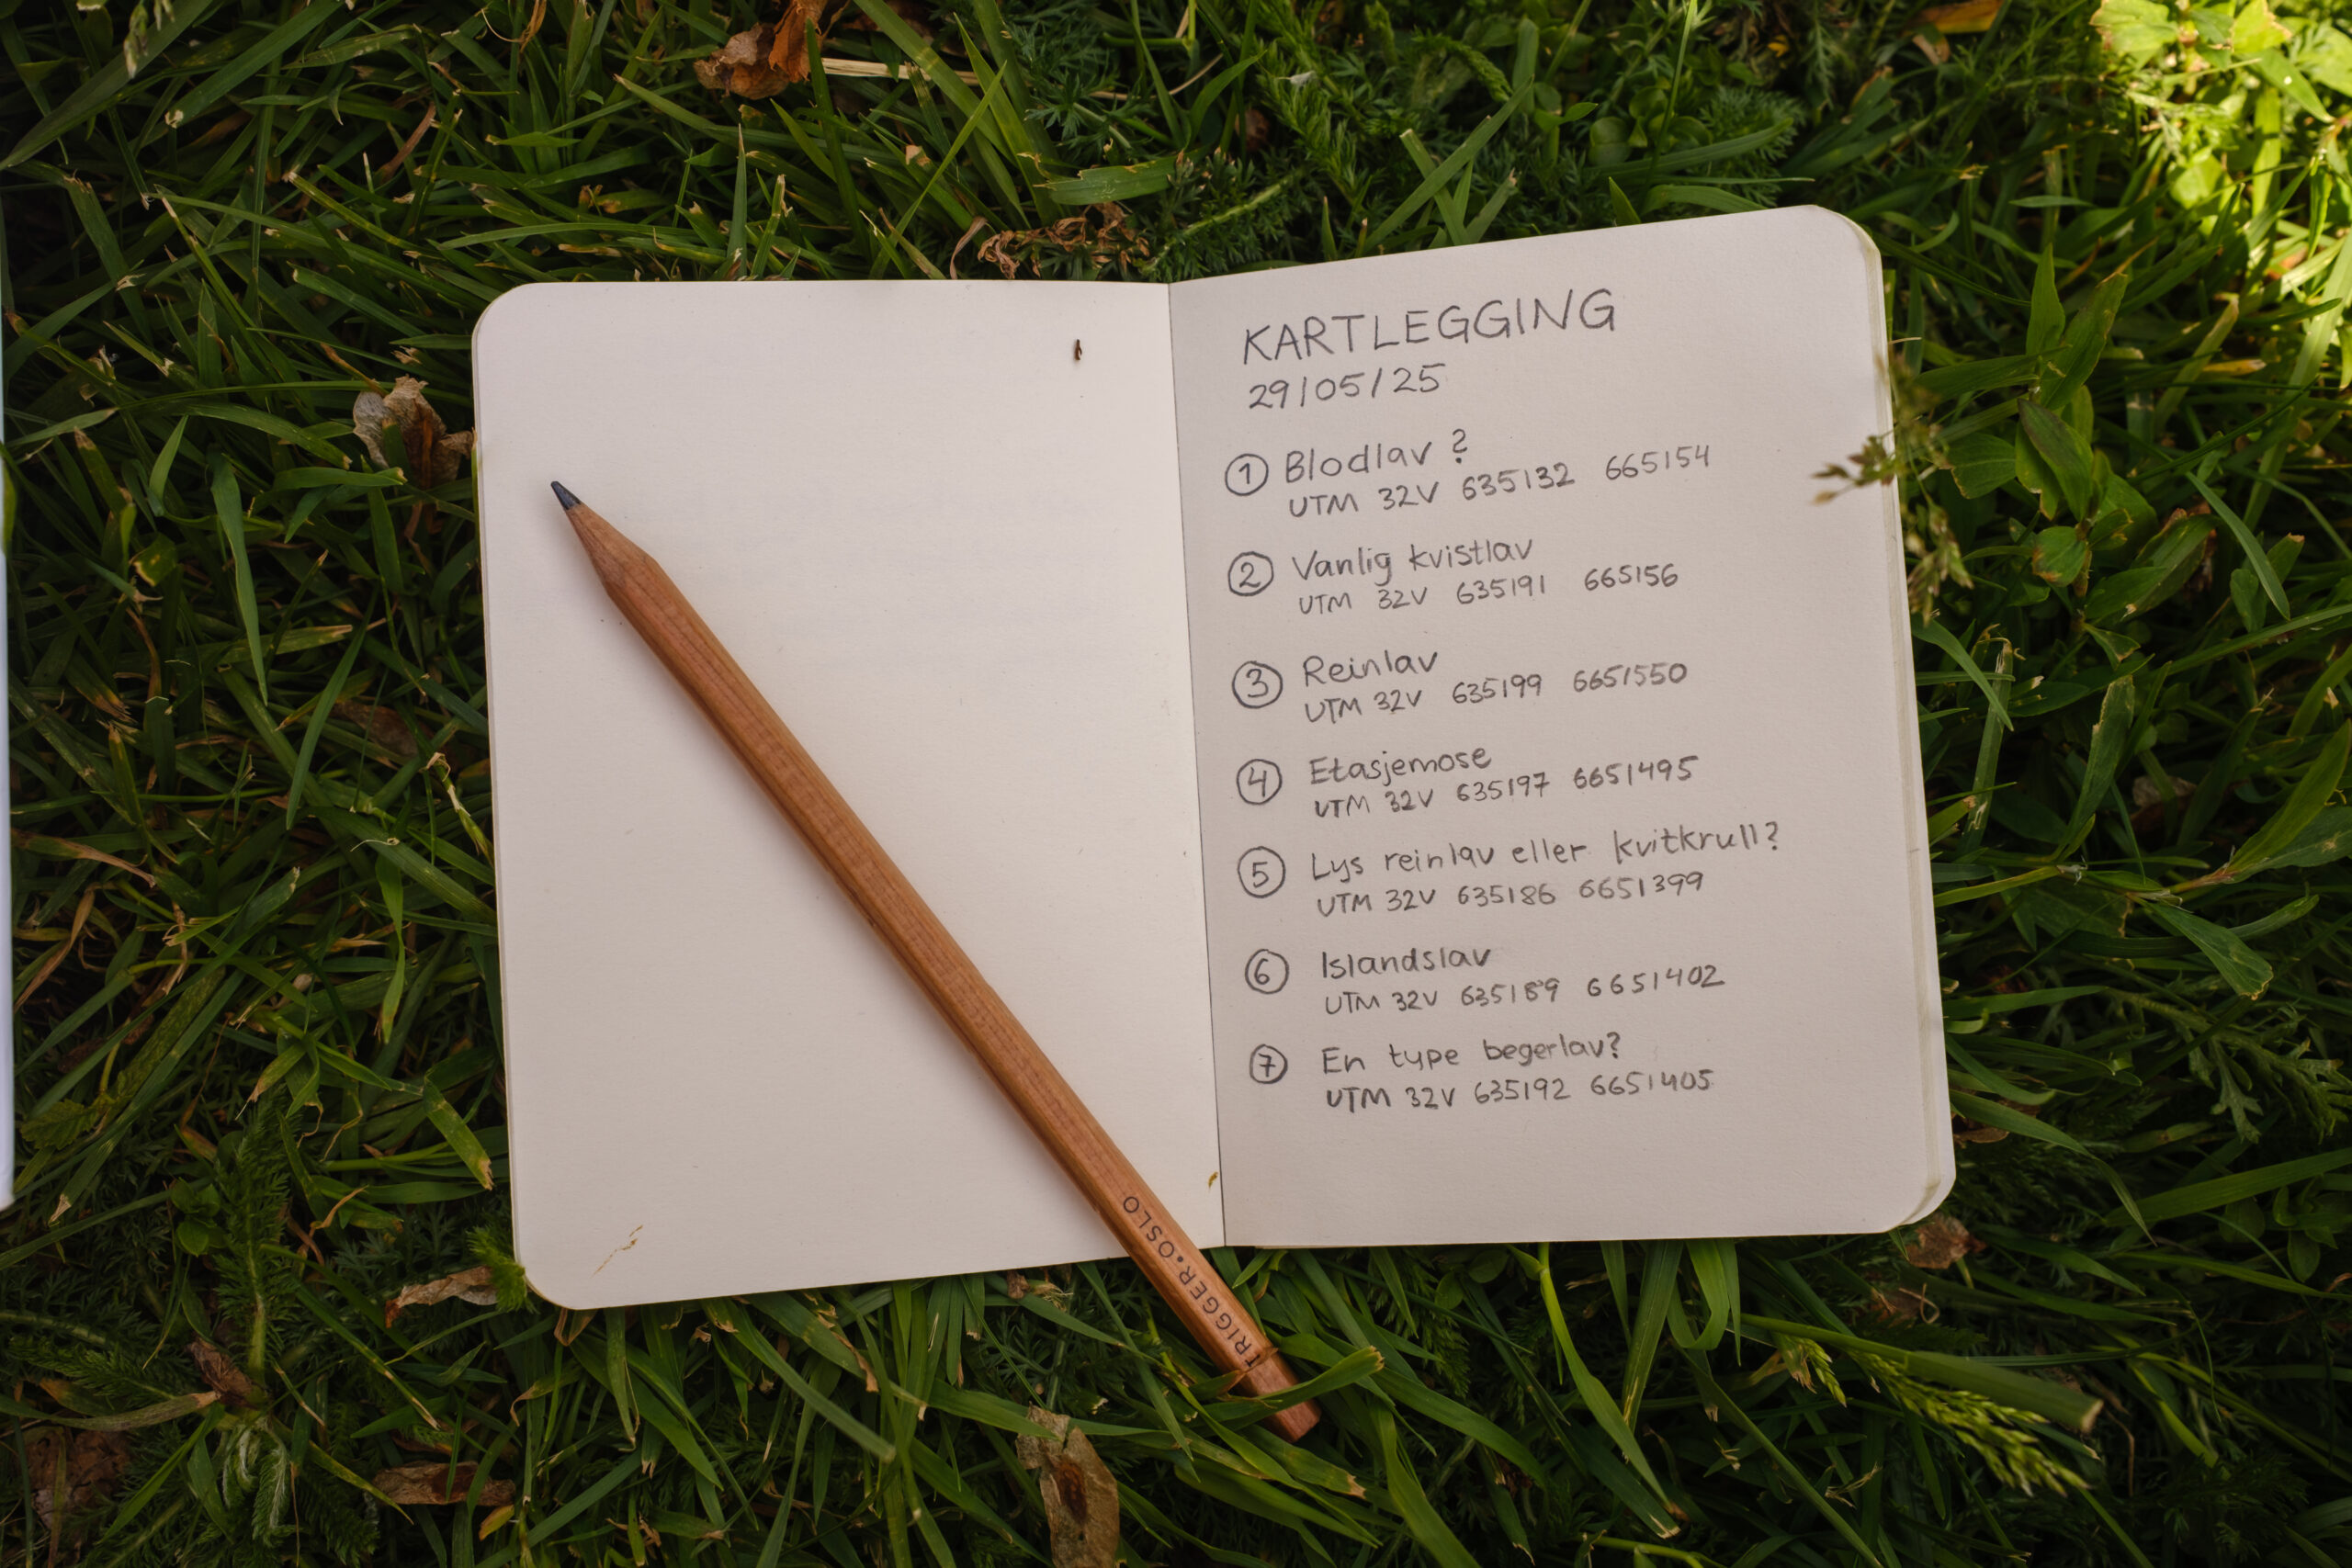 KARTLEGGING
29/05/25
1 Blodlav ?
UTM 32V 635132 665154
2 Vanlig kvistlav
UTM 32V 635191 665156
3 Reinlav
UTM 32V 635199 6651550
4 Etasjemose
UTM 32V 635197 6651495
5 Lys reinlav eller kvitkrull?
UTM 32V 635186 6651399
6 Islandslav
UTM 32V 635189 6651402
7 En type begerlav?
UTM 32V 635192 6651405
TRIGGER.OSLO